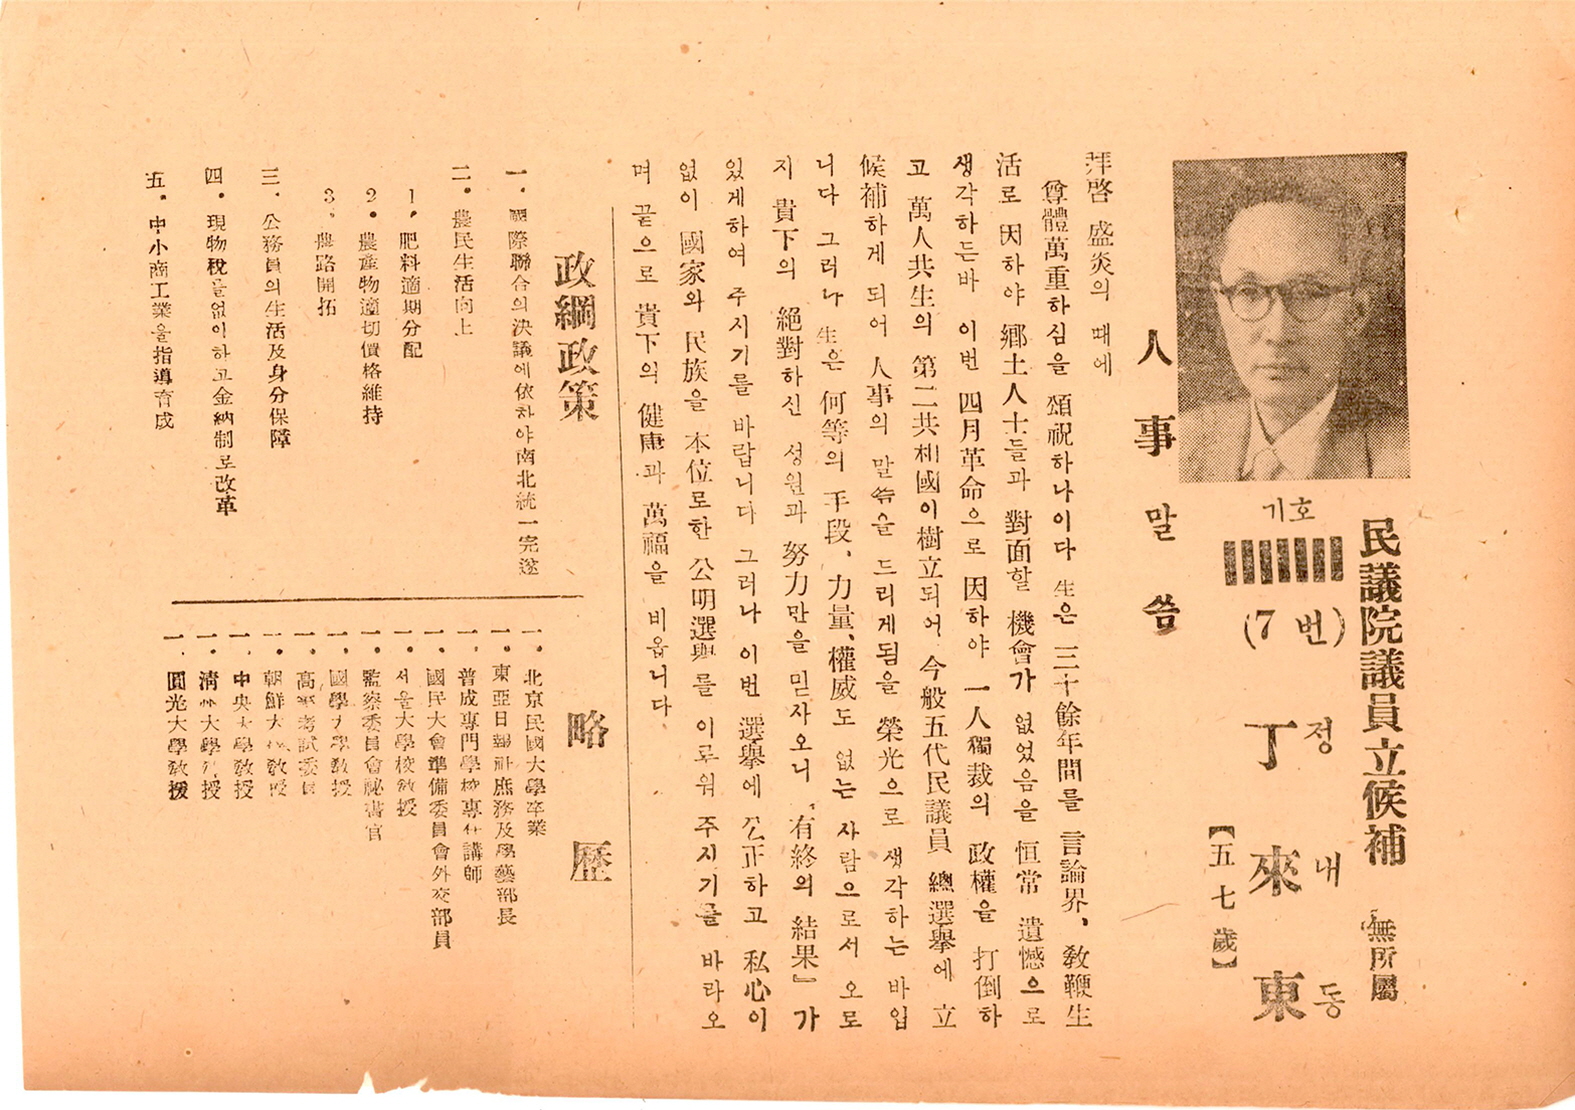 民議院議員立候補 無所屬
기호
(7번)
정 내 동
丁來東
【五七歲】
人事말씀
拜啓 盛炎의 때에
尊體萬重하심을 頌祝하나이다 生은 三十餘年間를 言論界、敎鞭生
活로 因하야 鄕土人士들과 對面할 機會가 없었음을 恒常 遺憾으로
생각하든바 이번 四月革命으로 因하야 一人獨裁의 政權을 打倒하
고 萬人共生의 第二共和國이 樹立되어 今般五代民議員 總選擧에 立
候補하게 되어 人事의 말씀을 드리게됨을 榮光으로 생각하는 바입
니다 그러나 生은 何等의 手段、力量、權威도 없는 사람으로서 오로
지 貴下의 絕對하신 성원과 努力만을 믿사오니 有終의 結果』가
있게하여 주시기를 바랍니다 그러나 이번 選擧에 公正하고 私心이
없이 國家와 民族을 本位로한 公明選擧를 이루워 주시기를 바라오
며 끝으로 貴下의 健康과 萬福을 비옵니다
政綱政策
一. 國際聯合의 決議에 依하야 南北統一完遂
二. 農民生活向上
1. 肥料適期分配
2. 農產物適切價格維持
3. 農路開拓
三. 公務員의 生活及身分保障
四. 現物稅를없이하고 金納制로改革
五. 中小商工業을 指導育成
略歷
一. 北京民國大學卒業
一. 東亞日報社庶務及學藝部長
一. 普成專門學校專任講師
一. 國民大會準備委員會外交部員
一. 서울大學校敎授
一. 監察委員會祕書官
一. 國學大學敎授
一. 高等考試委員
一. 朝鮮大 敎授
一. 中央大學敎授
一. 淸州大學敎授
一. 圓光大學敎授